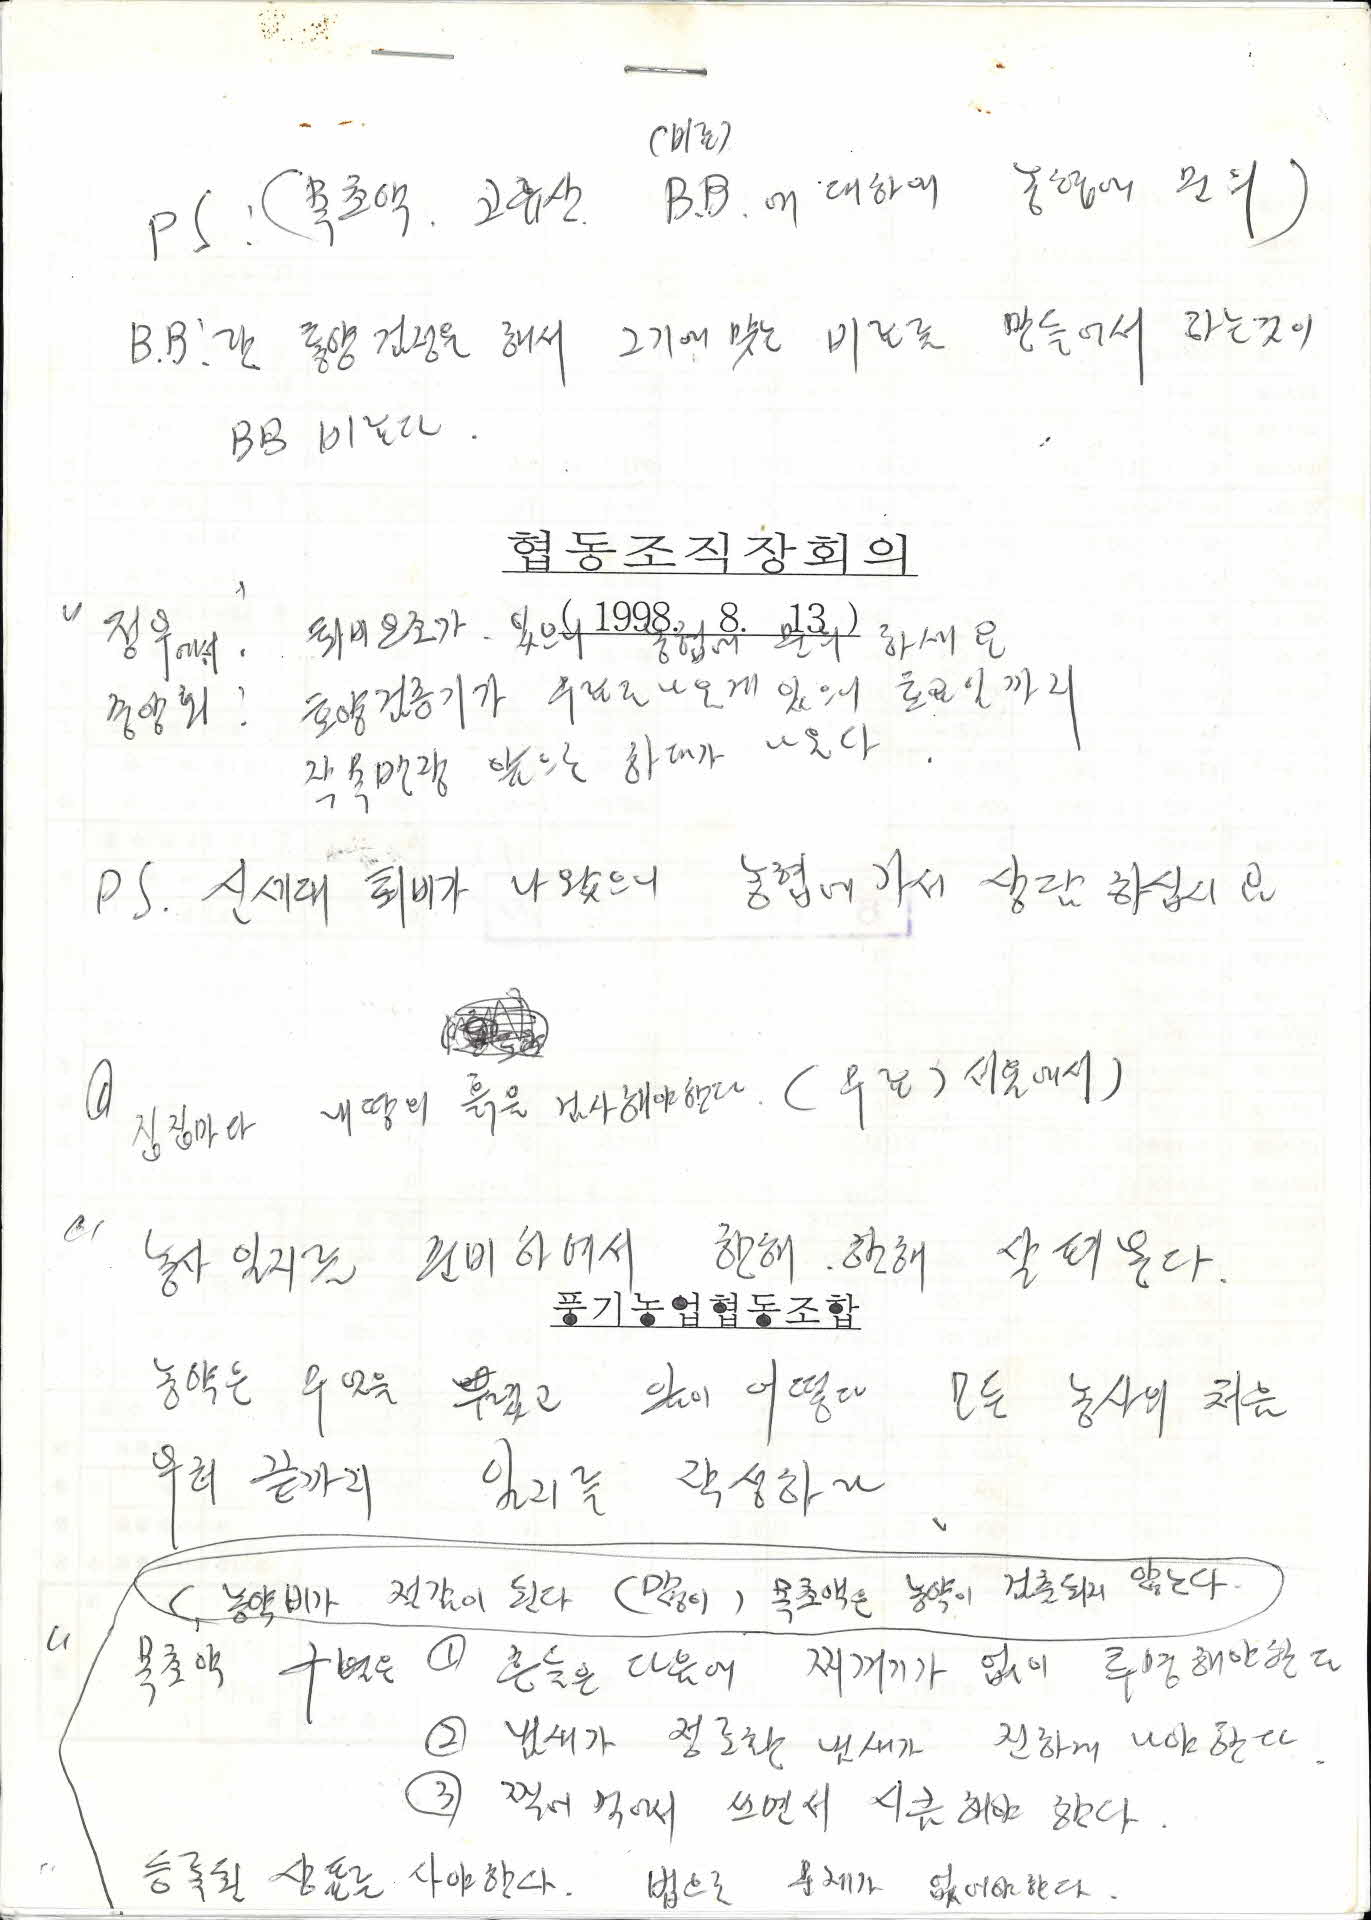 (비료)
PS: (목초액. 고름산. B.B.에 대하여 농협에 문의)
B.B!란 토양검정을 해서 그기에 맞는 비료로 만들어서 하는것이
BB 비료다.
협동조직장회의
( 1998. 8. 13 )
정우에서! 퇴비온조가 있으니 농협에 문의 하세요
중앙회! 토양검증기가 무료로 나오게 있으니 토요일까지
작목반장 앞으로 하대가 나온다.
PS. 신세대 퇴비가 나왔으니 농협에 가서 상담 하십시요
① 집집마다 내땅의 흙을 검사해야한다. (무료) 서울에서)
농사일지를 준비하여서 한해. 한해 살펴본다.
풍기농업협동조합
농약은 무엇을 뿌렸고 이 어떻다 모든 농사의 처음
부터 끝까지 일지를 작성하라
(농약비가 절감이 된다 (많이) 목초액은 농약이 검출되지 않는다.
목초액 구별은 ① 흔들은 다음에 찌꺼기가 없이 투명해야한다
② 냄새가 정로환 냄새가 진하게 나야한다.
③ 찍어 먹어서 쓰면서 시큼해야 한다.
등록된 상표를 사야한다. 법으로 문제가 없어야한다.